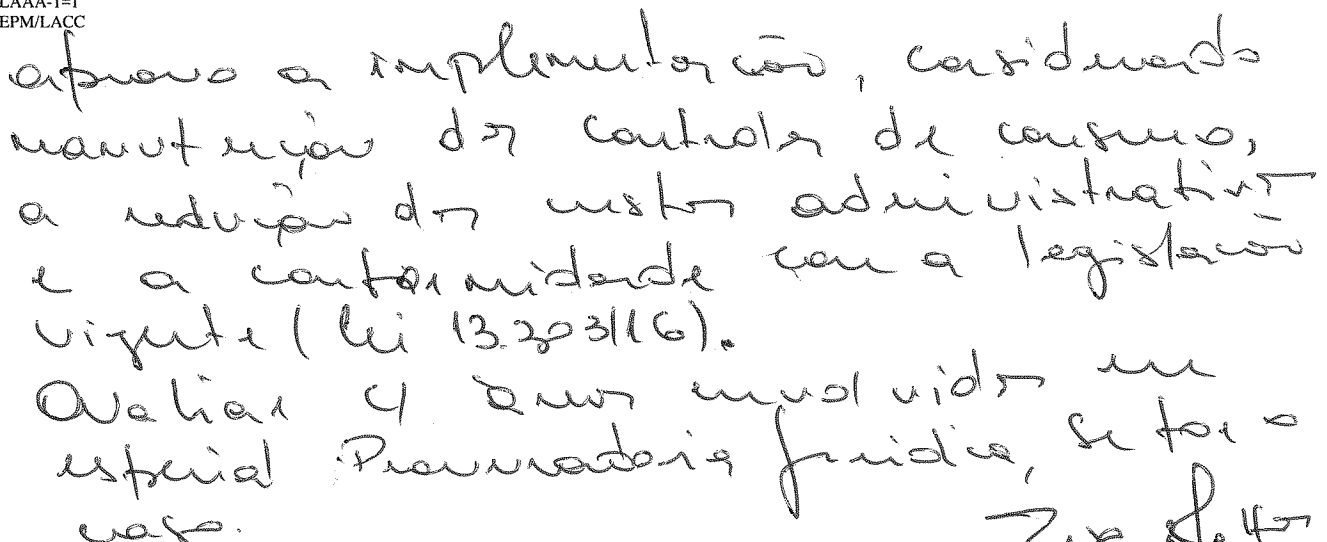 LAAA-1=1
EPM/LACC
aprovo a implementação, considerando
manutenção dos controles de consumo,
a redução dos custos administrativos
e a conformidade com a legislação
vigente (Lei 13.303/16).
Avaliar c/ áreas envolvidas em
especial Procuradoria Jurídica, se for o
caso.